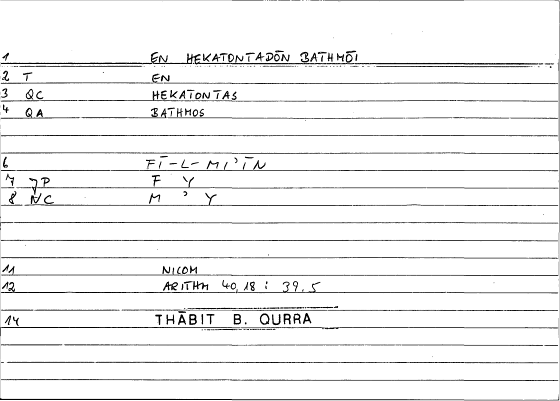 1 EN HEKATONTADŌN BATHMŌI
2 T EN
3 QC HEKATONTAS
4 QA BATHMOS
6 FĪ-L-MI'ĪN
7 JP F Y
8 NC M ' Y
11 NICOM
12 ARITHM 40,18 : 39,5
14 THĀBIT B. QURRA